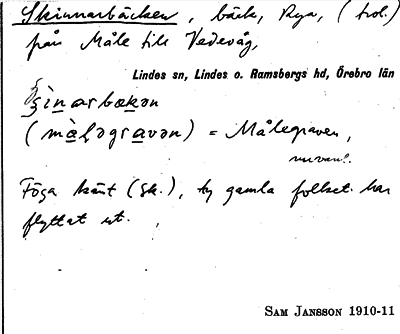 Skinnarbäcken, bäck, Rya, (trol.)
från Måle till Vedevåg,
Lindes sn, Lindes o. Ramsbergs hd, Örebro län
(målegravən) = Målegraven,
Föga känt (Sk.), ty gamla folket har
flyttat ut.
SAM JANSSON 1910-11